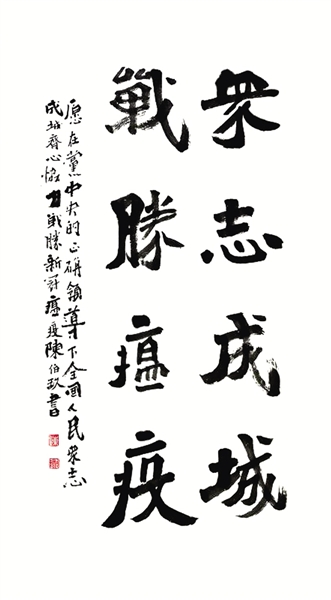 眾志成城
戰勝瘟疫
愿在黨中央的正确領導下全國人民眾志
成城齊心協力戰勝新冠瘟疫陳伯玖書